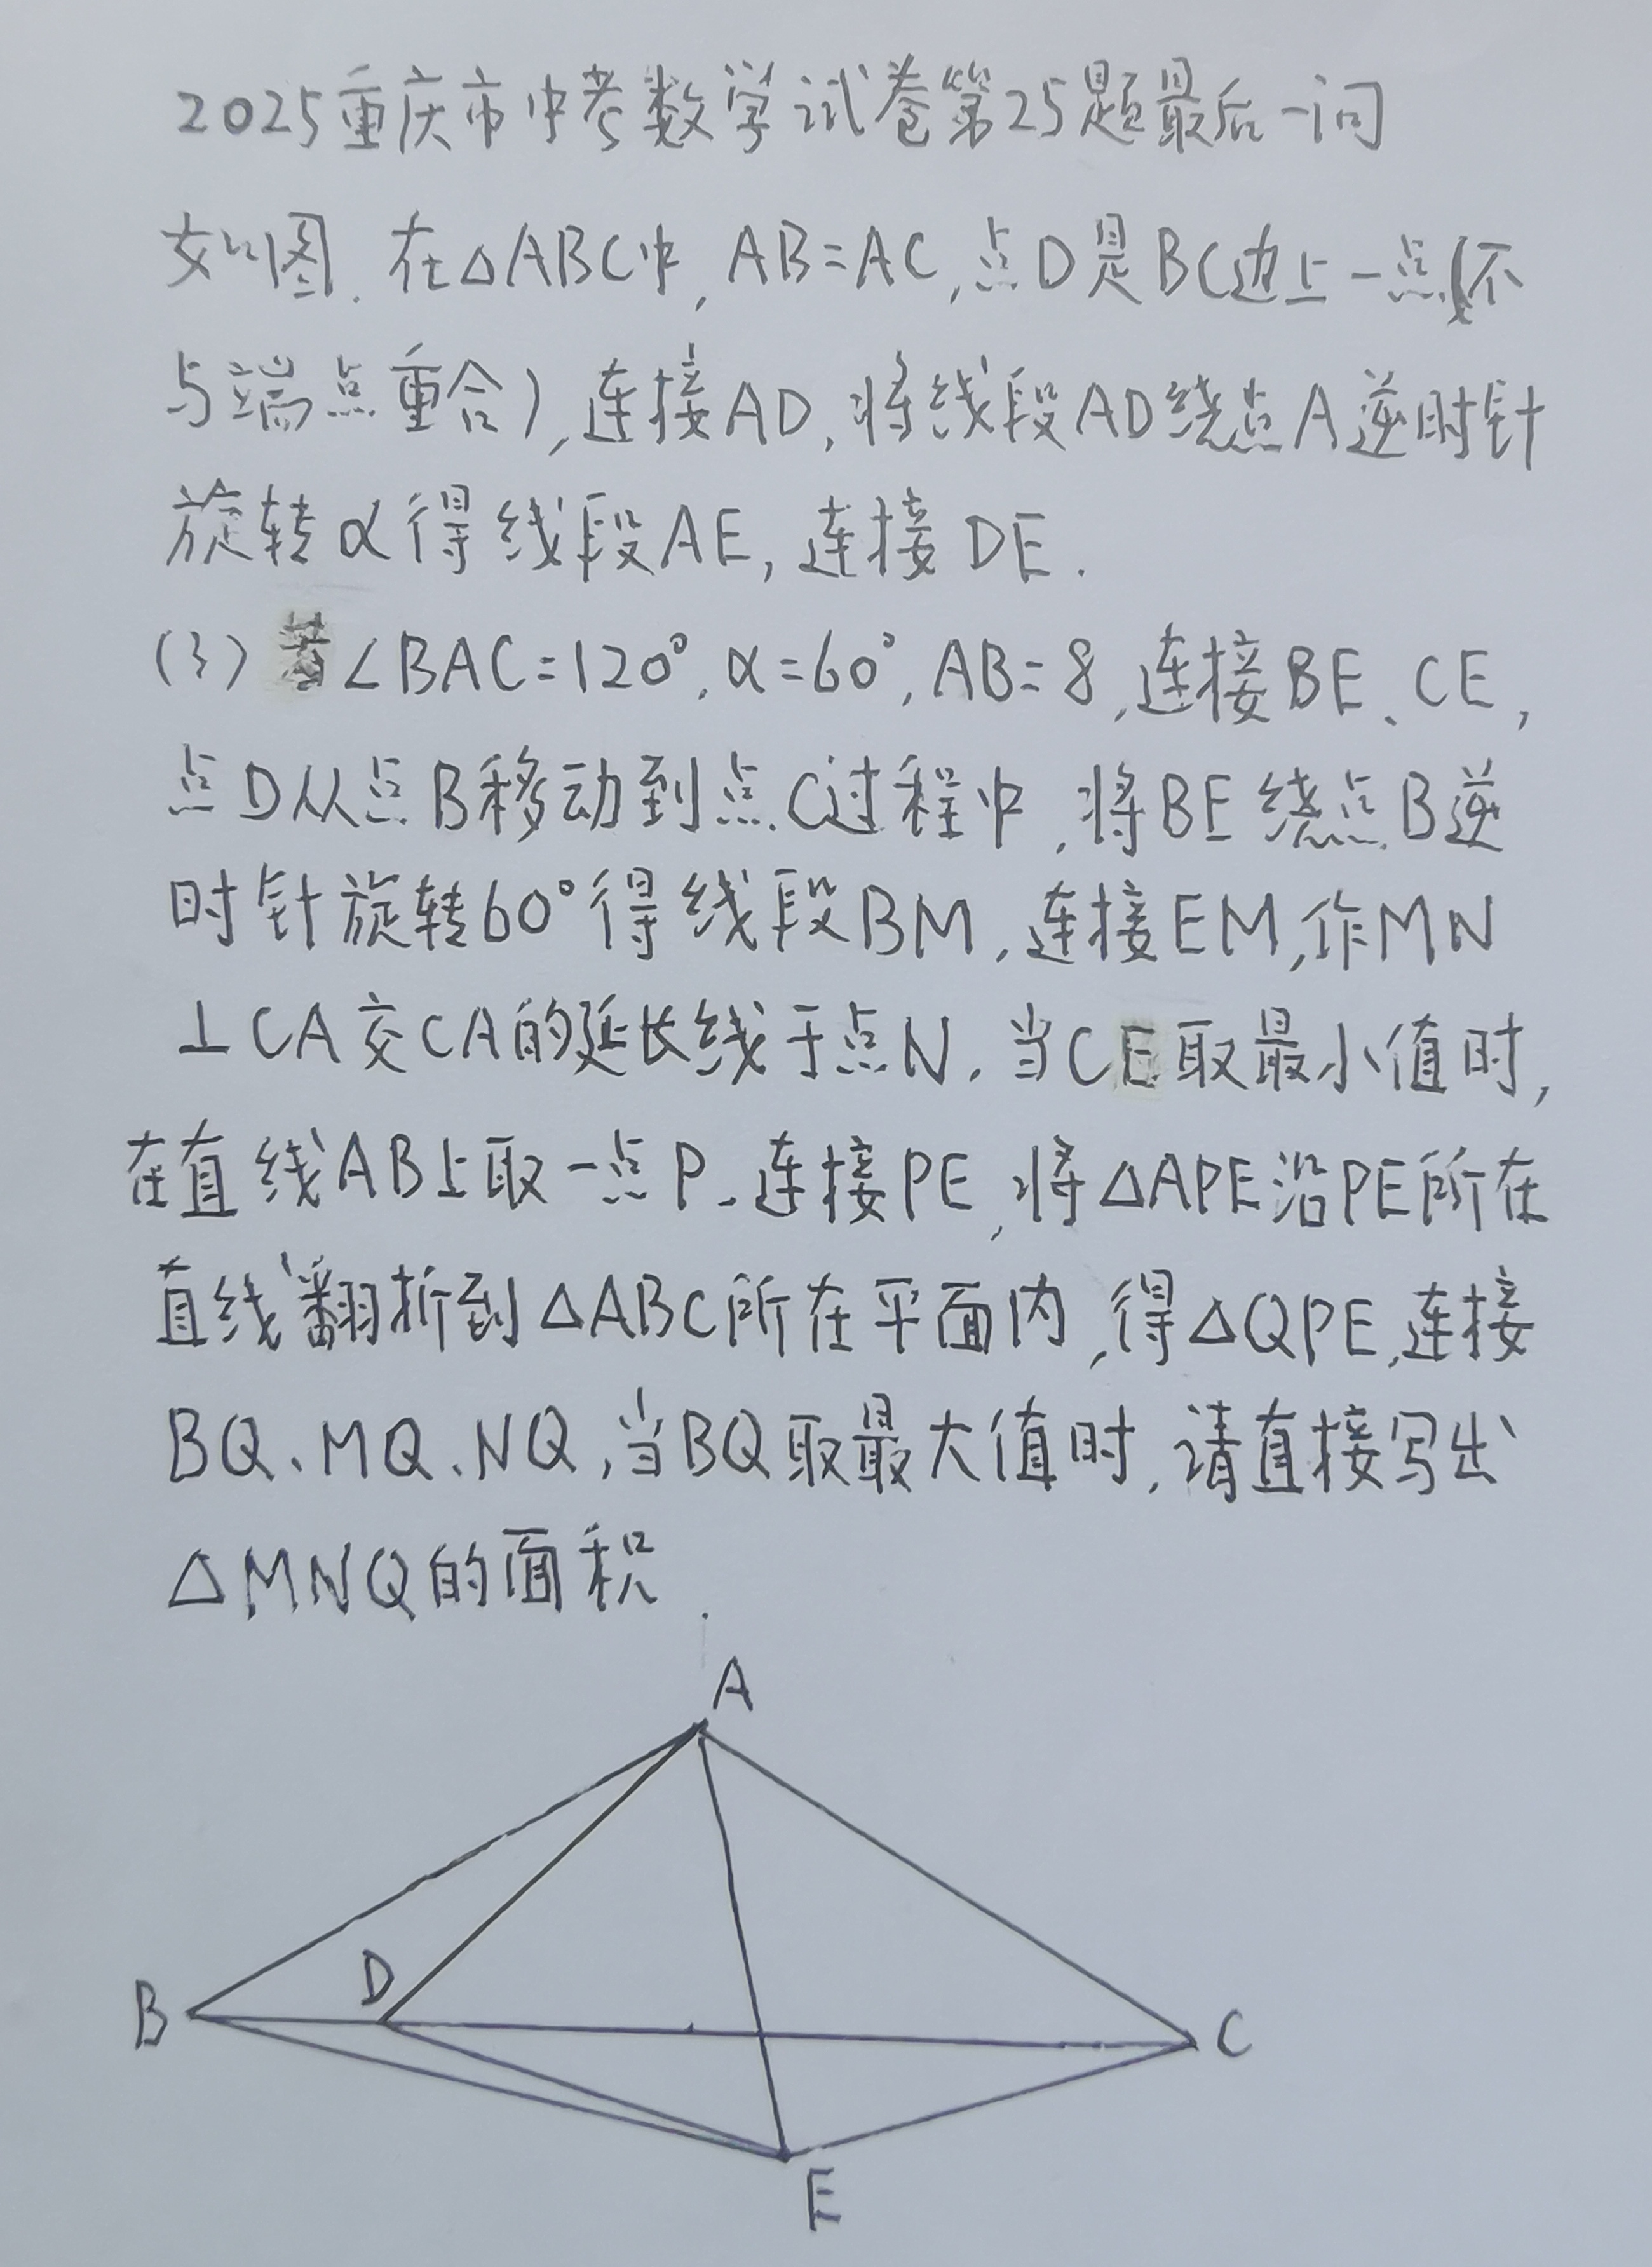 2025重庆市中考数学试卷第25题最后一问
如图.在△ABC中,AB=AC,点D是BC边上一点(不
与端点重合),连接AD,将线段AD绕点A逆时针
旋转α得线段AE,连接DE.
(3)若∠BAC=120°,α=60°,AB=8,连接BE、CE,
点D从点B移动到点C过程中,将BE绕点B逆
时针旋转60°得线段BM,连接EM,作MN
⊥CA交CA的延长线于点N.当CE取最小值时,
在直线AB上取一点P.连接PE,将△APE沿PE所在
直线翻折到△ABC所在平面内,得△QPE,连接
BQ、MQ、NQ,当BQ取最大值时,请直接写出
△MNQ的面积.
A
B
D
C
E